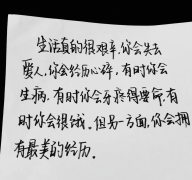 生活真的很艰辛,你会失去
爱人,你会经历心碎,有时你会
生病,有时你会牙疼得要命,有
时你会很饿.但另一方面,你会拥
有最美的经历.